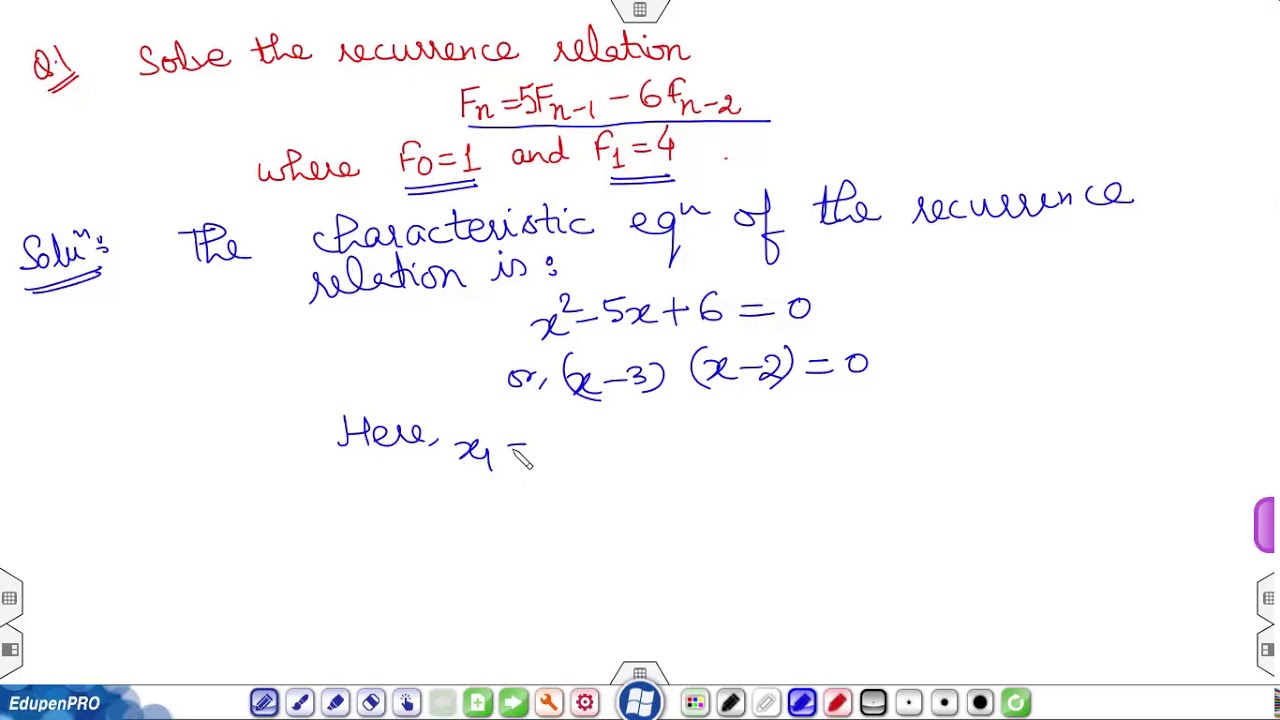 Q.1 Solve the recurrence relation
Fn = 5Fn-1 - 6fn-2
where F0 = 1 and F1 = 4 .
Soluⁿ: The characteristic eqⁿ of the recurrence
relation is:
x² - 5x + 6 = 0
or, (x-3) (x-2) = 0
Here, x1 =
EdupenPRO